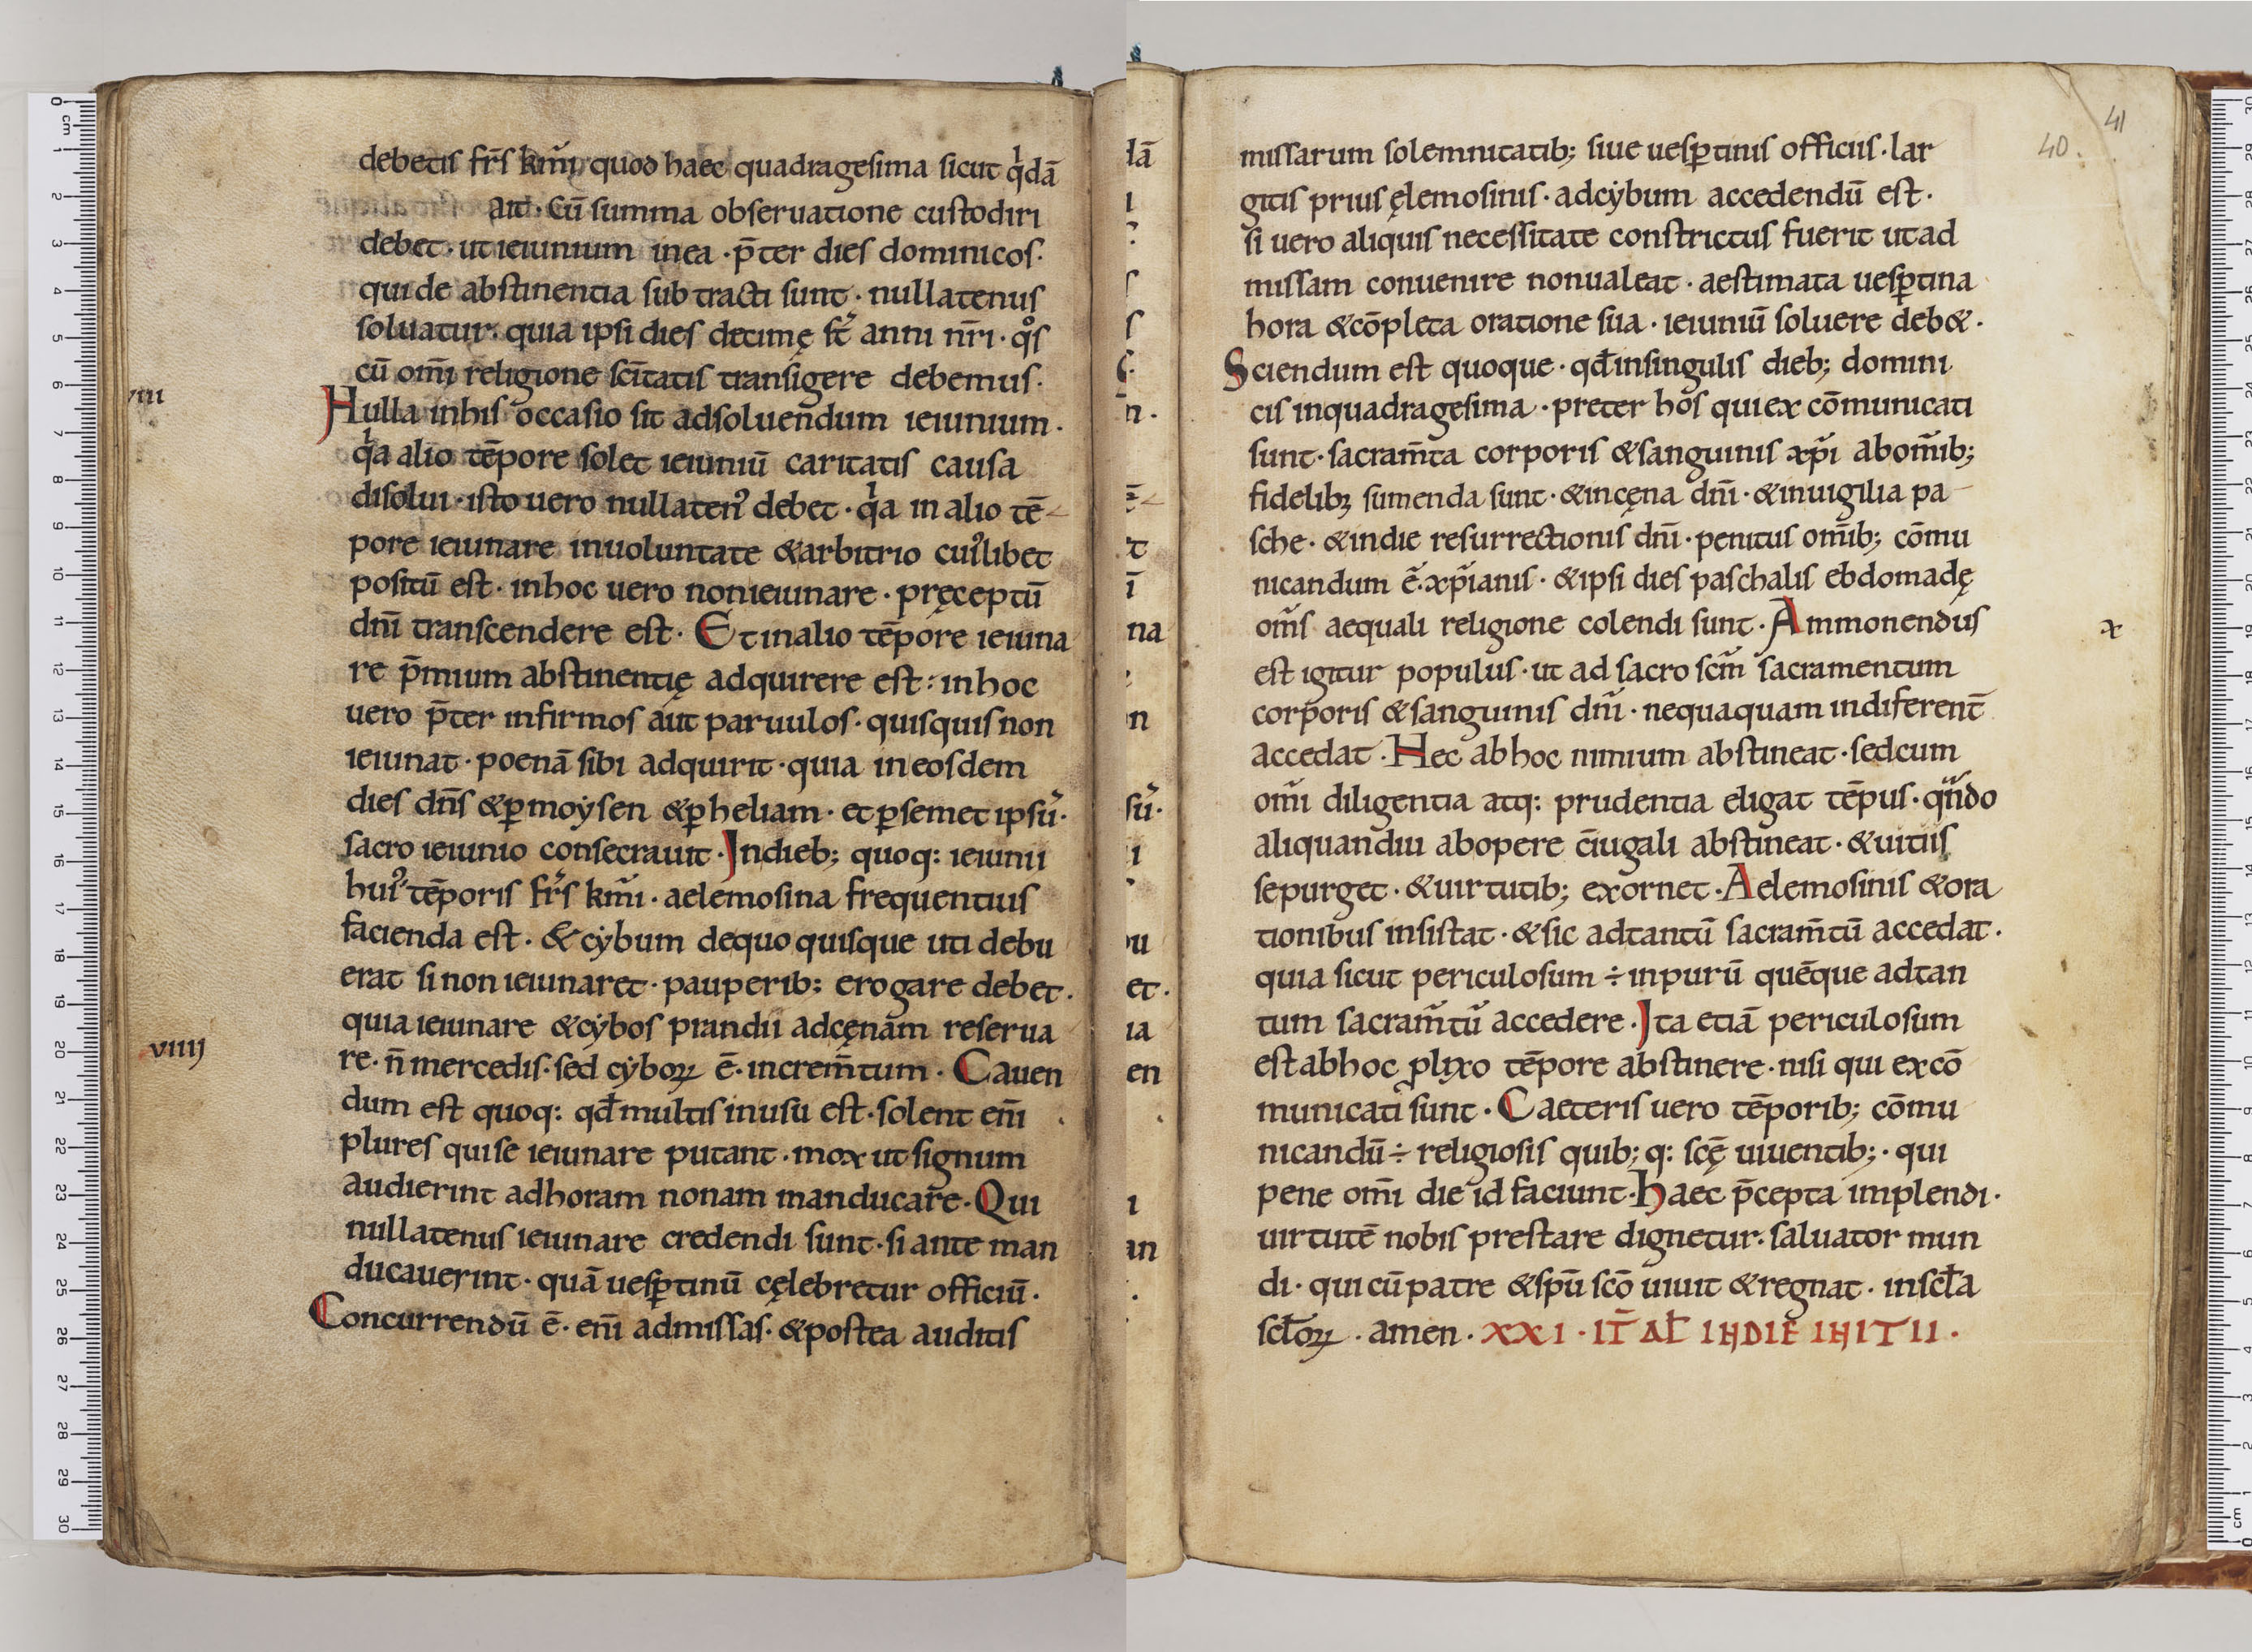 debetis fr̄s km̄i, quod haec quadragesima sicut qͥdā
ait. Cū summa obseruatione custodiri
debet. ut ieiunium inea. p̄ter dies dominicos.
qui de abstinentia subtracti sunt. nullatenus
soluatur. quia ipsi dies decimę st̄ anni nr̄i. qͦs
cū om̄i religione sc̄itatis transigere debemus.
viii
Nulla inhis occasio sit adsoluendum ieiunium.
qͥa alio tēpore solet ieiuniū caritatis causa
disolui. isto uero nullaten᾽ debet. qͥa in alio tē
pore ieiunare inuoluntate &arbitrio cui᾽libet
positū est. inhoc uero nonieiunare. pręceptū
dn̄i transcendere est. Et inalio tēpore ieiuna
re p̄mium abstinentię adquirere est: inhoc
uero p̄ter infirmos aut paruulos. quisquis non
ieiunat. poenā sibi adquirit. quia ineosdem
dies dn̄s &ꝑmoẏsen &ꝑheliam. et ꝑsemet ipsū.
sacro ieiunio consecrauit. Indieb; quoq: ieiunii
hui᾽ tēporis fr̄s km̄i. aelemosina frequentius
facienda est. & cẏbum dequo quisque uti debu
erat si non ieiunaret. pauperib; erogare debet.
quia ieiunare &cẏbos prandii adcęnam reserua
viiij
re. n̄ mercedis. sed cẏboꝝ ē. increm̄tum. Cauen
dum est quoq: qđ multis inusu est. solent en̄i
plures quise ieiunare putant. mox ut signum
audierint adhoram nonam manducare. Qui
nullatenus ieiunare credendi sunt. si ante man
ducauerint. quā uesꝑtinū cęlebretur officiū.
Concurrendū ē. en̄i admissas. &postea auditis
41
40.
missarum solemnitatib; siue uesꝑtinis officiis. lar
gitis prius ęlemosinis. adcẏbum accedendū est.
si uero aliquis necessitate constrictus fuerit utad
missam conuenire nonualeat. aestimata uesꝑtina
hora &cōpleta oratione sua. ieiuniū soluere deb&.
Sciendum est quoque. qđ insingulis dieb; domini
cis inquadragesima. preter hos quiex cōmunicati
sunt. sacram̄ta corporis &sanguinis xp̄i abom̄ib;
fidelibꝫ sumenda sunt. &incęna dn̄i. &inuigilia pa
sche. &indie resurrectionis dn̄i. penitus om̄ib; cōmu
nicandum ē. xp̄ianis. &ipsi dies paschalis ebdomadę
om̄s aequali religione colendi sunt. Ammonendus
x
est igitur populus. ut ad sacro sc̄m sacramentum
corporis &sanguinis dn̄i. nequaquam indiferent̄
accedat. Nec abhoc nimium abstineat. sedcum
om̄i diligentia atq: prudentia eligat tēpus. qn̄do
aliquandiu abopere c̄iugali abstineat. &uitiis
sepurget. &uirtutib; exornet. Aelemosinis &ora
tionibus insistat. &sic adtantū sacram̄tū accedat.
quia sicut periculosum ÷ inpurū quēque adtan
tum sacram̄tū accedere. Ita etiā periculosum
est abhoc plixo tēpore abstinere. nisi qui excō
municati sunt. Caeteris uero tēporib; cōmu
nicandū ÷ religiosis quib; q: sc̄ę uiuentib;. qui
pene om̄i die id faciunt. Haec p̄cepta implendi.
uirtutē nobis prestare dignetur. saluator mun
di. qui cū patre &spū scō uiuit &regnat. insc̄la
sc̄loꝝ. amen. XXI. IT̄ AŁ INDIE INITII.